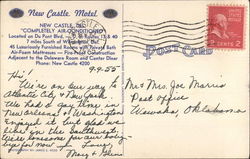 New Castle Motel
NEW CASTLE, DEL.
"COMPLETELY AIR-CONDITIONED"
Located on Du Pont Blvd., U. S. Routes 13 & 40
7 miles South of Wilmington, Del.
45 Luxuriously Furnished Rooms with Private Bath
Air-Foam Mattresses — Fire-Proof Construction
Adjacent to the Delaware Room and Caster Diner
Phone: New Castle 4200
POST CARD
2 CENTS 2
9-9-55
Hi!
We're on our way to
Atlantic City & New York.
We had a gay time in
New Orleans & Washington
Enjoyed it but
lived in the Southwest.
We're someone for our baby
bye for now. Love,
Mary &
Mr & Mrs. Joe Marris
Post office
Wewoka, Oklahoma